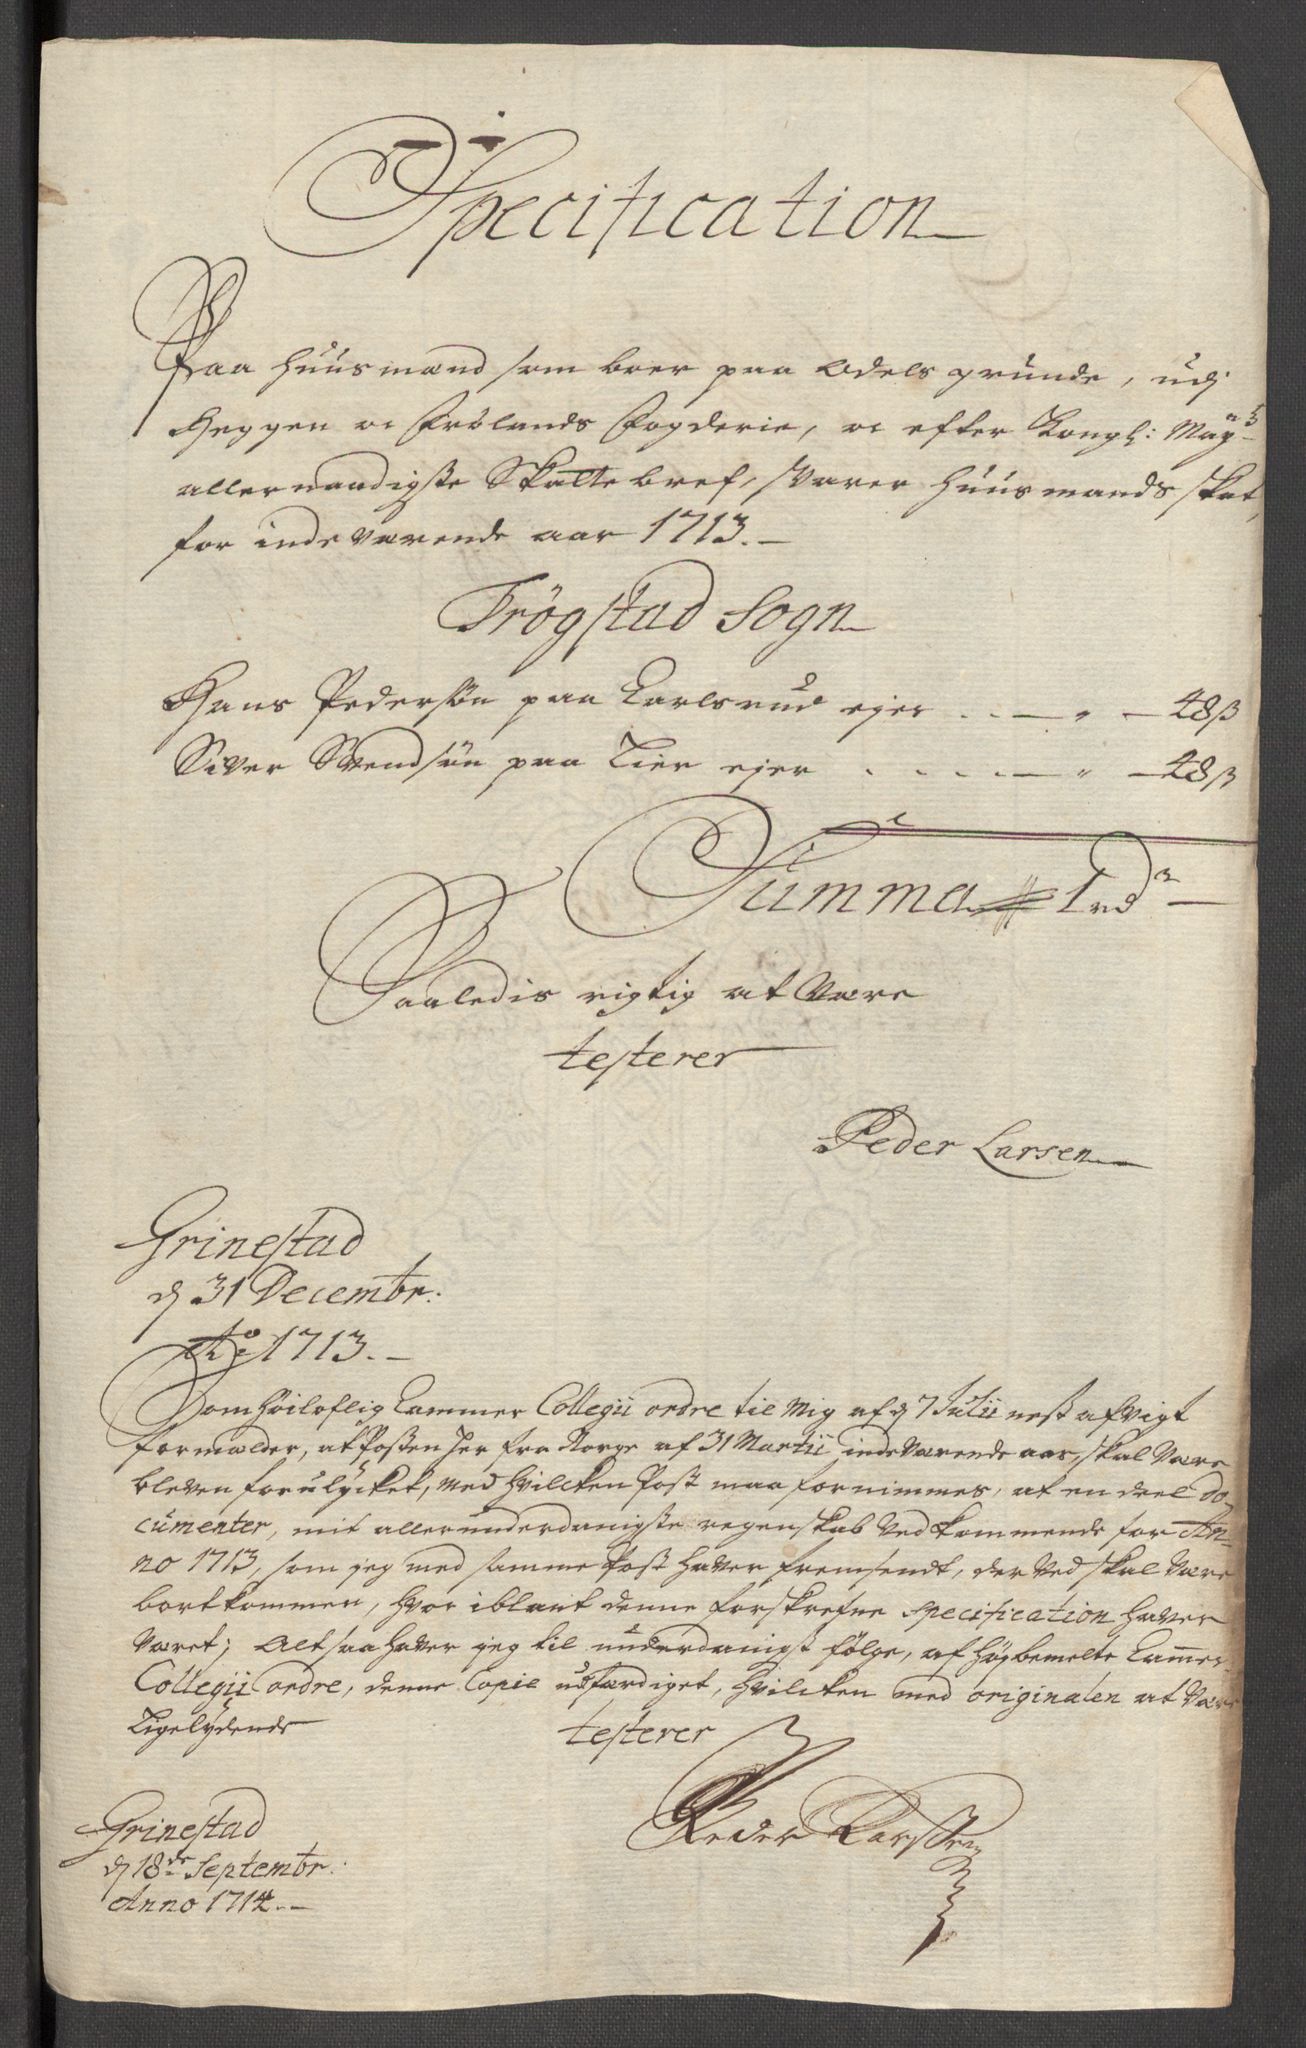 Specification
Paa Huusmænd som boer paa Odels grunde, udj
Heggen oc Frølands Fogderie, oc efter Kongl: May:ts
allernaadigste Skatte bref, svarer Huusmands skat,
for indeværende aar 1713.
Trögstad Sogn
Hans Pedersön paa Carlsrud ejer - 48 ß
Siver Svendsön paa Lier ejer - 48 ß
Summa 1 rdr
Saaledis rigtig at være
testerer
Peder Larsen
Grinestad
d 31 Decembr:
Ao 1713.
Som höiloflig Cammer Collegii ordre til mig af d 7 Julii nest afvigt
formælder, at Posten her fra Norge af 31 Martii indeværende aar, skal være
bleven forulÿcket, med hvilcken Post maa fornimmes, at en deel do-
cumenter, mit allerunderdanigste regenskab vedkommende for An-
no 1713, som jeg med samme Post haver fremsendt, der ved skal være
bortkommen, hvor iblant denne forskrefne specification haver
været; Alt saa haver jeg til underdanigst fölge, af höybemelte Cammer
Collegii ordre, denne Copie udfærdiget, hvilcken med originalen at være
Ligelÿdende testerer
Peder Larssen
Grinestad
d 18de Septembr:
Anno 1714.